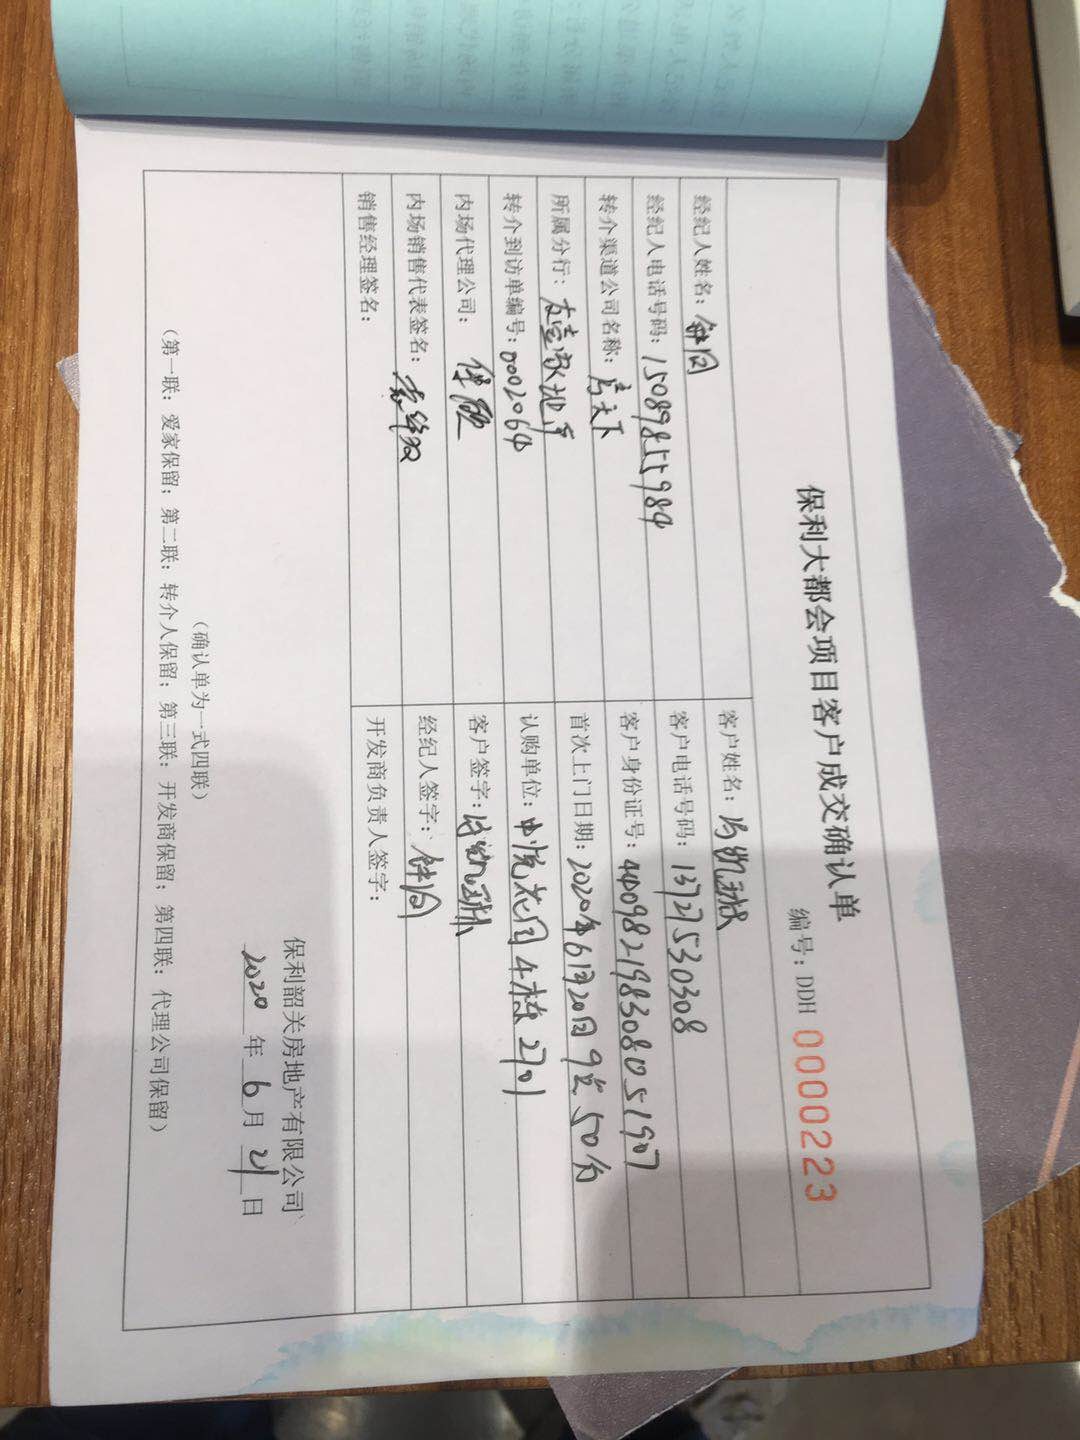 保利大都会项目客户成交确认单
编号：DDH 0000223
经纪人姓名：
客户姓名：
经纪人电话号码：15089855984
客户电话号码：13727530308
转介渠道公司名称：房天下
客户身份证号：440982198308051907
所属分行：
首次上门日期：2020年6月20日9点50分
转介到访单编号：0002064
认购单位：中悦花园4栋2701
内场代理公司：保顾
客户签字：
内场销售代表签名：
经纪人签字：
销售经理签名：
开发商负责人签字：
保利韶关房地产有限公司
2020年6月21日
（确认单为一式四联）
（第一联：爱家保留；第二联：转介人保留；第三联：开发商保留；第四联：代理公司保留）